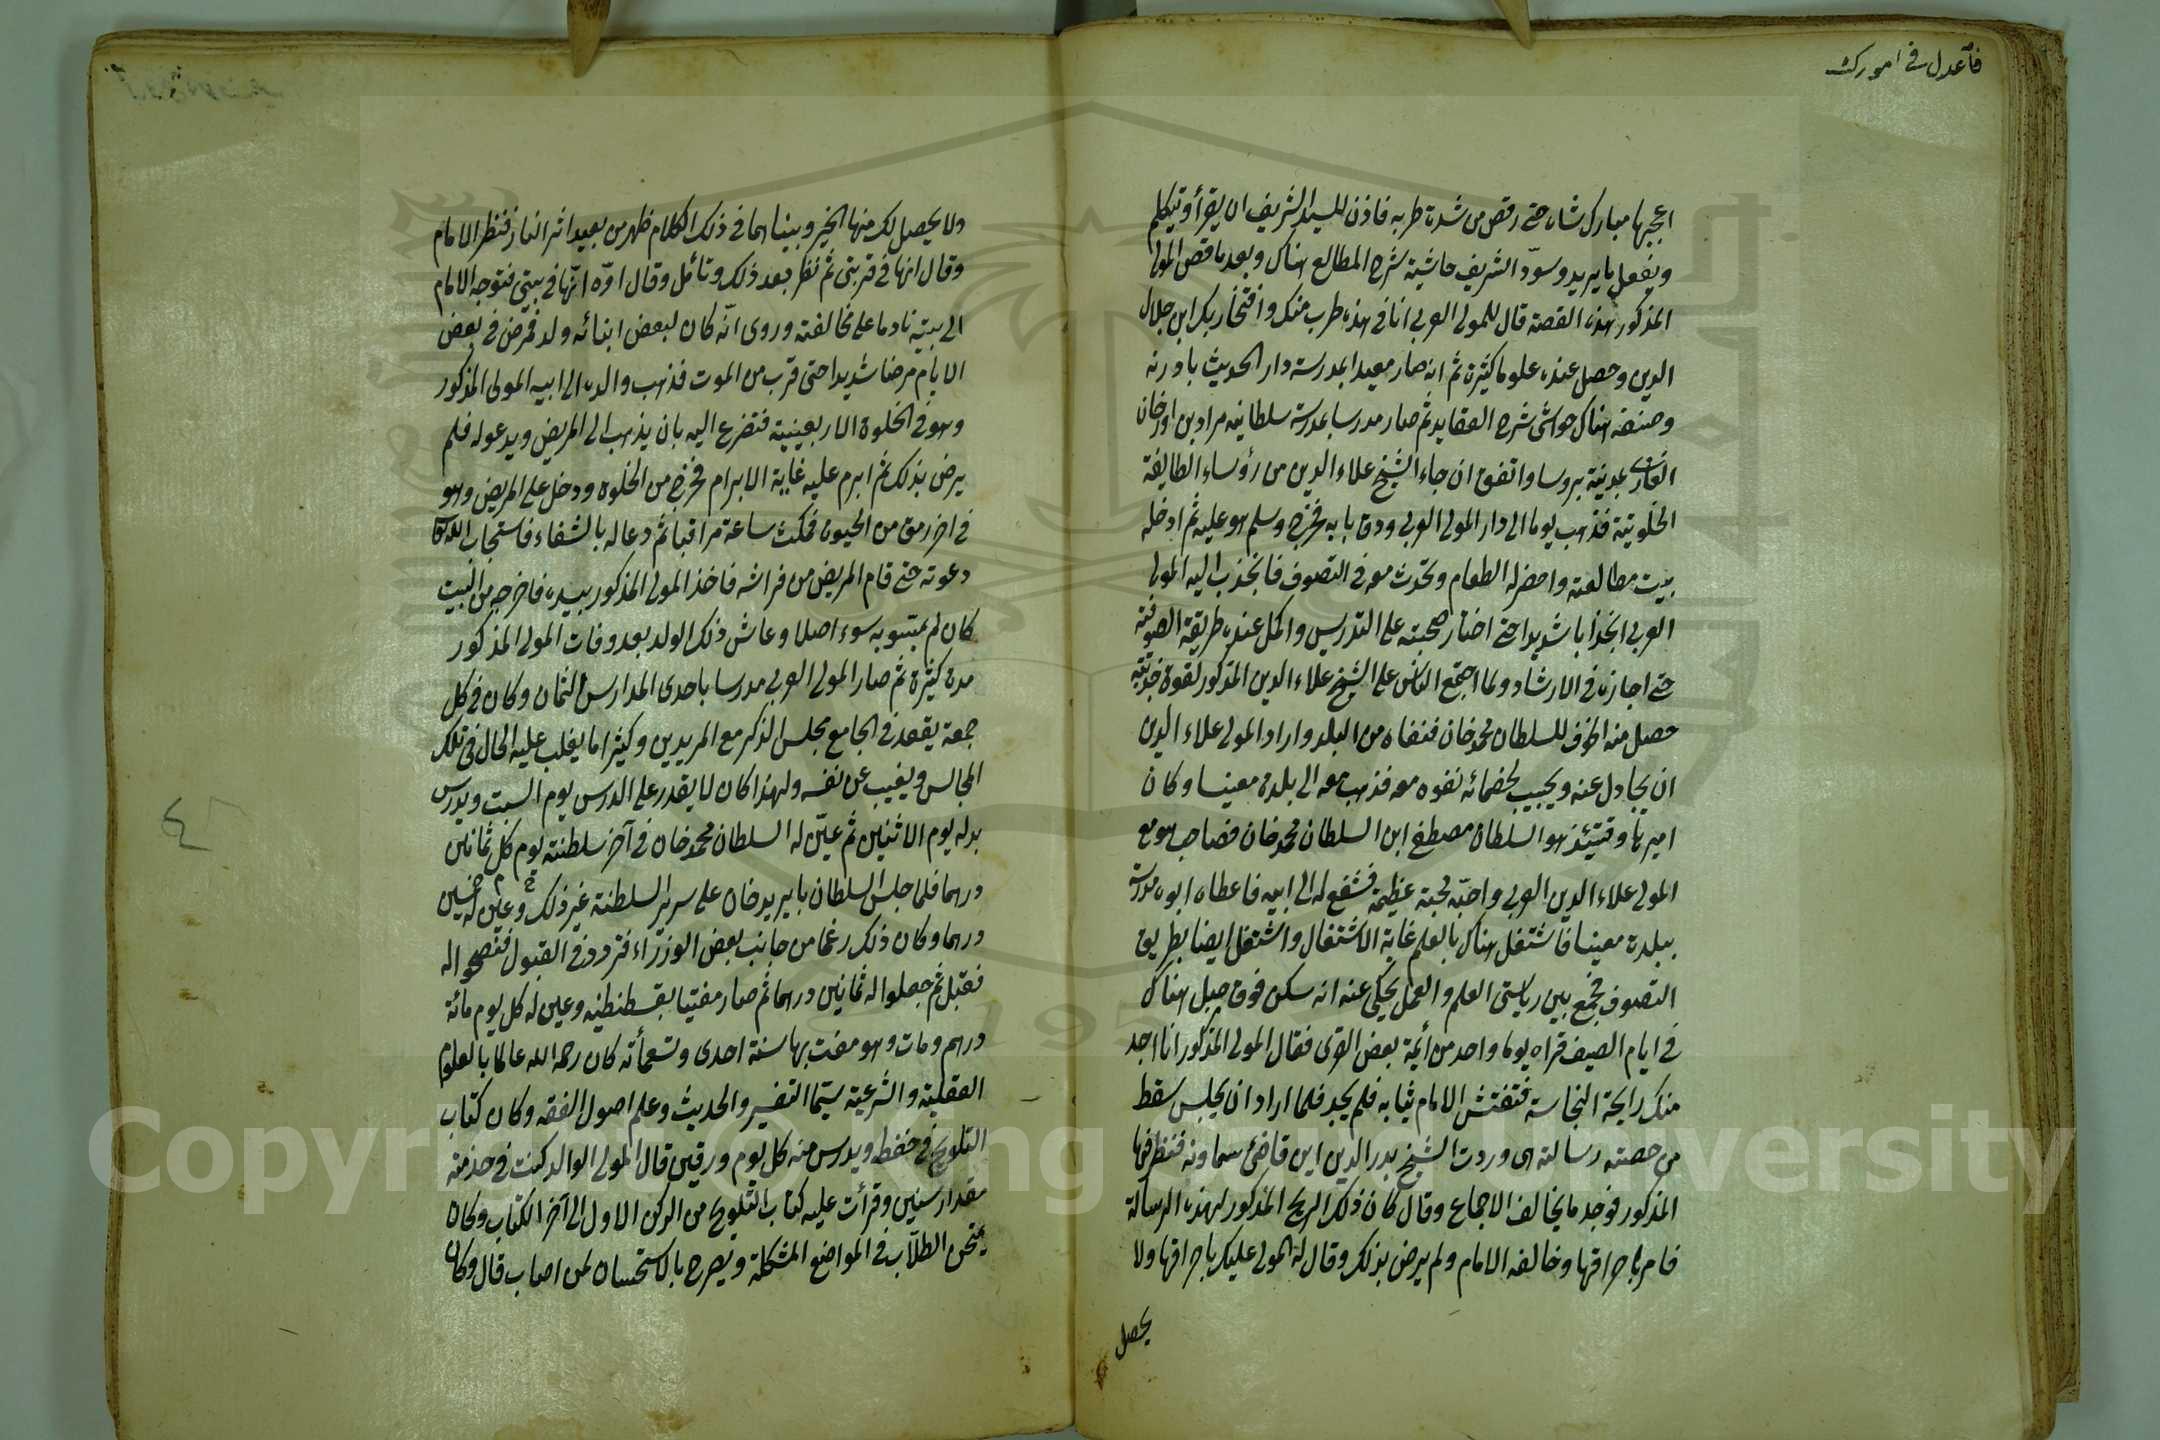 فاعدل في امورك
اعجبها مبارك شاه حتى رقص من شدة طربه فاذن للسيد الشريف ان يقرأ ويتكلم
ويفعل ما يريد وسوّد الشريف حاشية شرح المطالع هناك وبعد ما قص المولى
المذكور هذه القصة قال للمولى العربى انا فى هذه طرب منك وافتخار بك ابن جلال
الدين وحصل عنده علوما كثيرة ثم انه صار معيدا بمدرسة دار الحديث بادرنه
وصنف هناك حواشى شرح العقايد ثم صار مدرسا بمدرسة سلطانيه مراد بن اورخان
الغازى بمدينة بروسا واتفق ان جاء الشيخ علاء الدين من رؤساء الطايفة
الخلوتية فذهب يوما الى دار المولى العربى ودق بابه فخرج وسلم هو عليه ثم ادخله
بيت مطالعته واحضر له الطعام وتحدث معه فى التصوف فانجذب اليه المولى
العربى انجذابا شديدا حتى اختار صحبته على التدريس واكمل عنده طريقة الصوفية
حتى اجازه فى الارشاد ولما اجتمع الناس على الشيخ علاء الدين المذكور لقوة جذبته
حصل منه الخوف للسلطان محمد خان فنفاه من البلد واراد المولى علاء الدين
ان يجادل عنه ويجيب لخصمائه نفوه معه فذهب معه الى بلدة مغنيسا وكان
اميرها وقتئذ هو السلطان مصطفى ابن السلطان محمد خان فصاحب هو مع
المولى علاء الدين العربى واحبّه محبة عظيمة فشفع له الى ابيه فاعطاه ابوه مدرسة
ببلدة مغنيسا فاشتغل هناك بالعلم غاية الاشتغال واشتغل ايضا بطريق
التصوف فجمع بين رياستى العلم والعمل يحكى عنه انه سكن فوق جبل هناك
فى ايام الصيف فزاره يوما واحد من أئمة بعض القرى فقال المولى المذكور انا اجد
منك رايحة النجاسة ففتش الامام ثيابه فلم يجد فلما اراد ان يجلس سقط
من حضنه رسالة هى وردت الشيخ بدر الدين ابن قاضى سماونه فنظر فيها
المذكور فوجد ما يخالف الاجماع وقال كان ذلك الريح المذكور لهذه الرسالة
فامر باحراقها وخالفه الامام ولم يرض بذلك وقال له المولى عليك باحراقها ولا
يحصل
ولا يحصل لك منها الخير وبينا هما فى ذلك الكلام ظهر من بعيد اثر النار فنظر الامام
وقال انها فى قريتى ثم نظر بعد ذلك وتأمل وقال اوّه انها فى بيتى فتوجه الامام
الى بيته نادما على مخالفته وروى انّه كان لبعض ابنائه ولد فمرض فى بعض
الايام مرضا شديدا حتى قرب من الموت فذهب والده الى ابيه المولى المذكور
وهو فى الخلوة الاربعينية فتضرع اليه بان يذهب الى المريض ويدعو له فلم
يرض بذلك ثم ابرم عليه غاية الابرام فخرج من الخلوة ودخل على المريض وهو
فى اخر رمق من الحيوة فمكث ساعة مراقبا ثم دعا له بالشفاء فاستجاب الله تعا
دعوته حتى قام المريض من فراشه فاخذ المولى المذكور بيده فاخرجه من البيت
كان لم يمسه سوء اصلا وعاش ذلك الولد بعد وفات المولى المذكور
مدة كثيرة ثم صار المولى العربى مدرسا باحدى المدارس الثمان وكان فى كل
جمعة يقعد فى الجامع مجلس الذكر مع المريدين وكثيرا ما يغلب عليه الحال فى تلك
المجالس ويغيب عن نفسه ولهذا كان لا يقدر على الدرس يوم السبت ويدرس
بدله يوم الاثنين ثم عيّن له السلطان محمد خان فى آخر سلطنته يوم كل ثمانين
درهما فلما جلس السلطان بايزيد خان على سرير السلطنة غير ذلك وعين له خمسين
درهما وكان ذلك رغما من جانب بعض الوزراء فتردد فى القبول فنصحوا له
فقبل ثم جعلوا له ثمانين درهما ثم صار مفتيا بقسطنطنيه وعين له كل يوم مائة
درهم ومات وهو مفت بها سنة احدى وتسعمأته كان رحمه الله عالما بالعلوم
العقلية والشرعية سيّما التفسير والحديث وعلم اصول الفقه وكان كتاب
التلويح فى حفظه ويدرس منه كل يوم ورقين قال المولى الوالد كنت فى خدمته
مقدار سنين وقرأت عليه كتاب التلويح من الركن الاول الى آخر الكتاب وكان
يمتحن الطلاب فى المواضع المشكلة ويصرح بالاستحسان لمن اصاب قال وكان
٤
Copyright © King Saud University